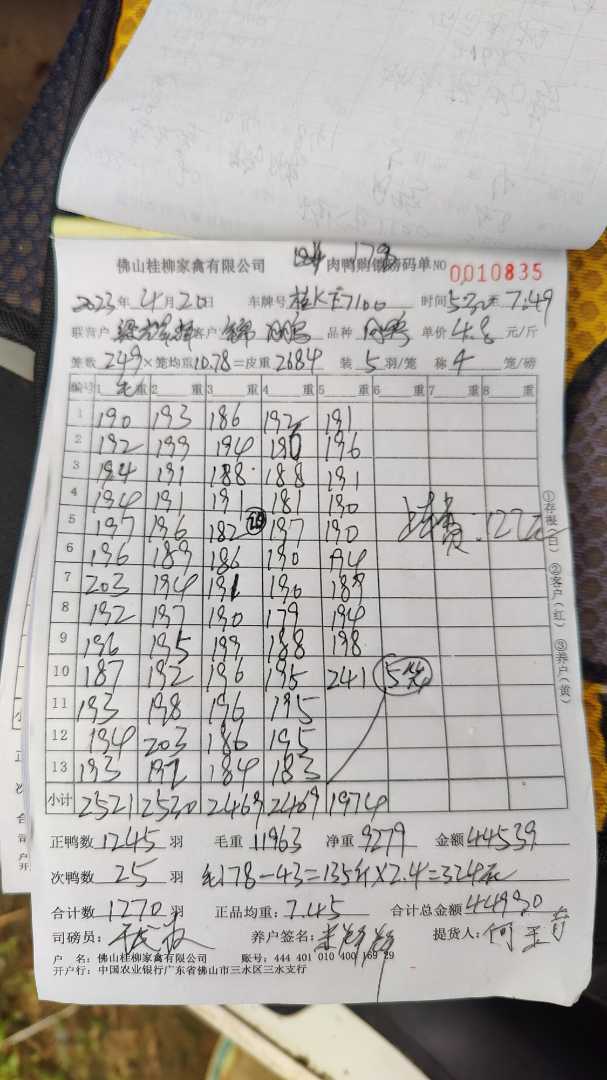 佛山桂柳家禽有限公司 肉鸭购销磅码单 NO 0010835
2023年4月20日 车牌号 桂KE7100 时间 5:30至7:49
联营户 客户 品种 单价 4.8 元/斤
笼数 249 × 笼均重 10.78 = 皮重 2684 装 5 羽/笼 称 4 笼/磅
编号 1 毛 重 2 重 3 重 4 重 5 重 6 重 7 重 8 重
1 190 193 186 192 191
2 192 199 194 180 196
3 194 191 188 188 191
4 194 191 191 181 190
5 197 196 182 197 190
上车费:127元
6 196 189 186 190 194
7 203 194 191 190 189
8 192 197 190 179 194
9 196 195 199 188 198
10 187 192 196 195 241 5笼
11 193 198 196 195
12 194 203 186 195
13 193 192 184 183
小计 2521 2530 2469 2469 1974
正鸭数 1245 羽 毛重 11963 净重 9279 金额 44539
次鸭数 25 羽 毛178-43=135斤×2.4=324元
合计数 1270 羽 正品均重: 7.45 合计总金额 44990
司磅员: 养户签名: 提货人: 何
户 名: 佛山桂柳家禽有限公司 账号: 444 401 010 400 169 29
开户行: 中国农业银行广东省佛山市三水区三水支行
①存根(白) ②客户(红) ③养户(黄)